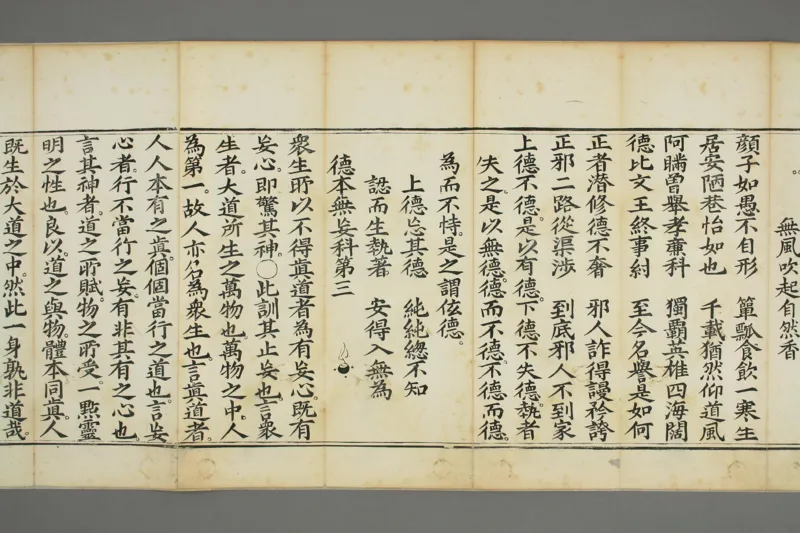 無風吹起自然香
顏子如愚不自形　簞瓢食飲一寒生
居安陋巷怡如也　千載猶然仰道風
阿瞞曾舉孝亷科　獨霸英雄四海闊
德比文王終事紂　至今名譽是如何
正者潛修德不奢　邪人詐得謾衿誇
正邪二路從渠涉　到底邪人不到家
上德不德。是以有德。下德不失德。執者
失之。是以無德。德而不德。不德而德。
為而不恃。是之謂伭德。
上德忘其德　純純緫不知
認而生執著　安得入無為
德本無妄科第三
衆生所以不得眞道者。為有妄心。既有
妄心。即驚其神。○此訓其止妄也。言衆
生者。大道所生之萬物也。萬物之中。人
為第一。故人亦名為衆生也。言眞道者。
人人本有之眞。個個當行之道也。言妄
心者。行不當行之妄。有非其有之心也。
言其神者。道之所賦。物之所受。一㸃靈
明之性也。良以道之與物。體本同眞。人
既生於大道之中。然此一身。孰非道哉。